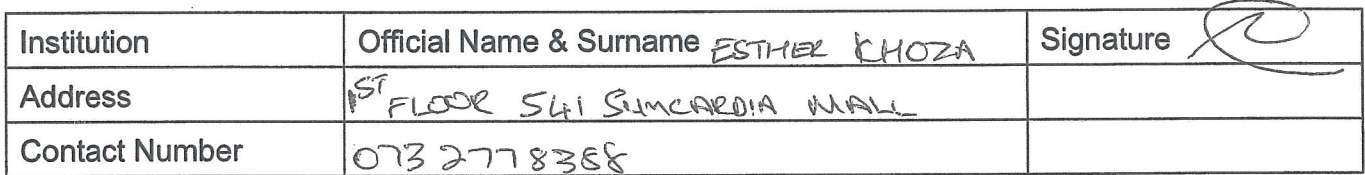 Institution Official Name & Surname ESTHER KHOZA Signature
Address 1ST FLOOR 541 MALL
Contact Number 073 277 8368